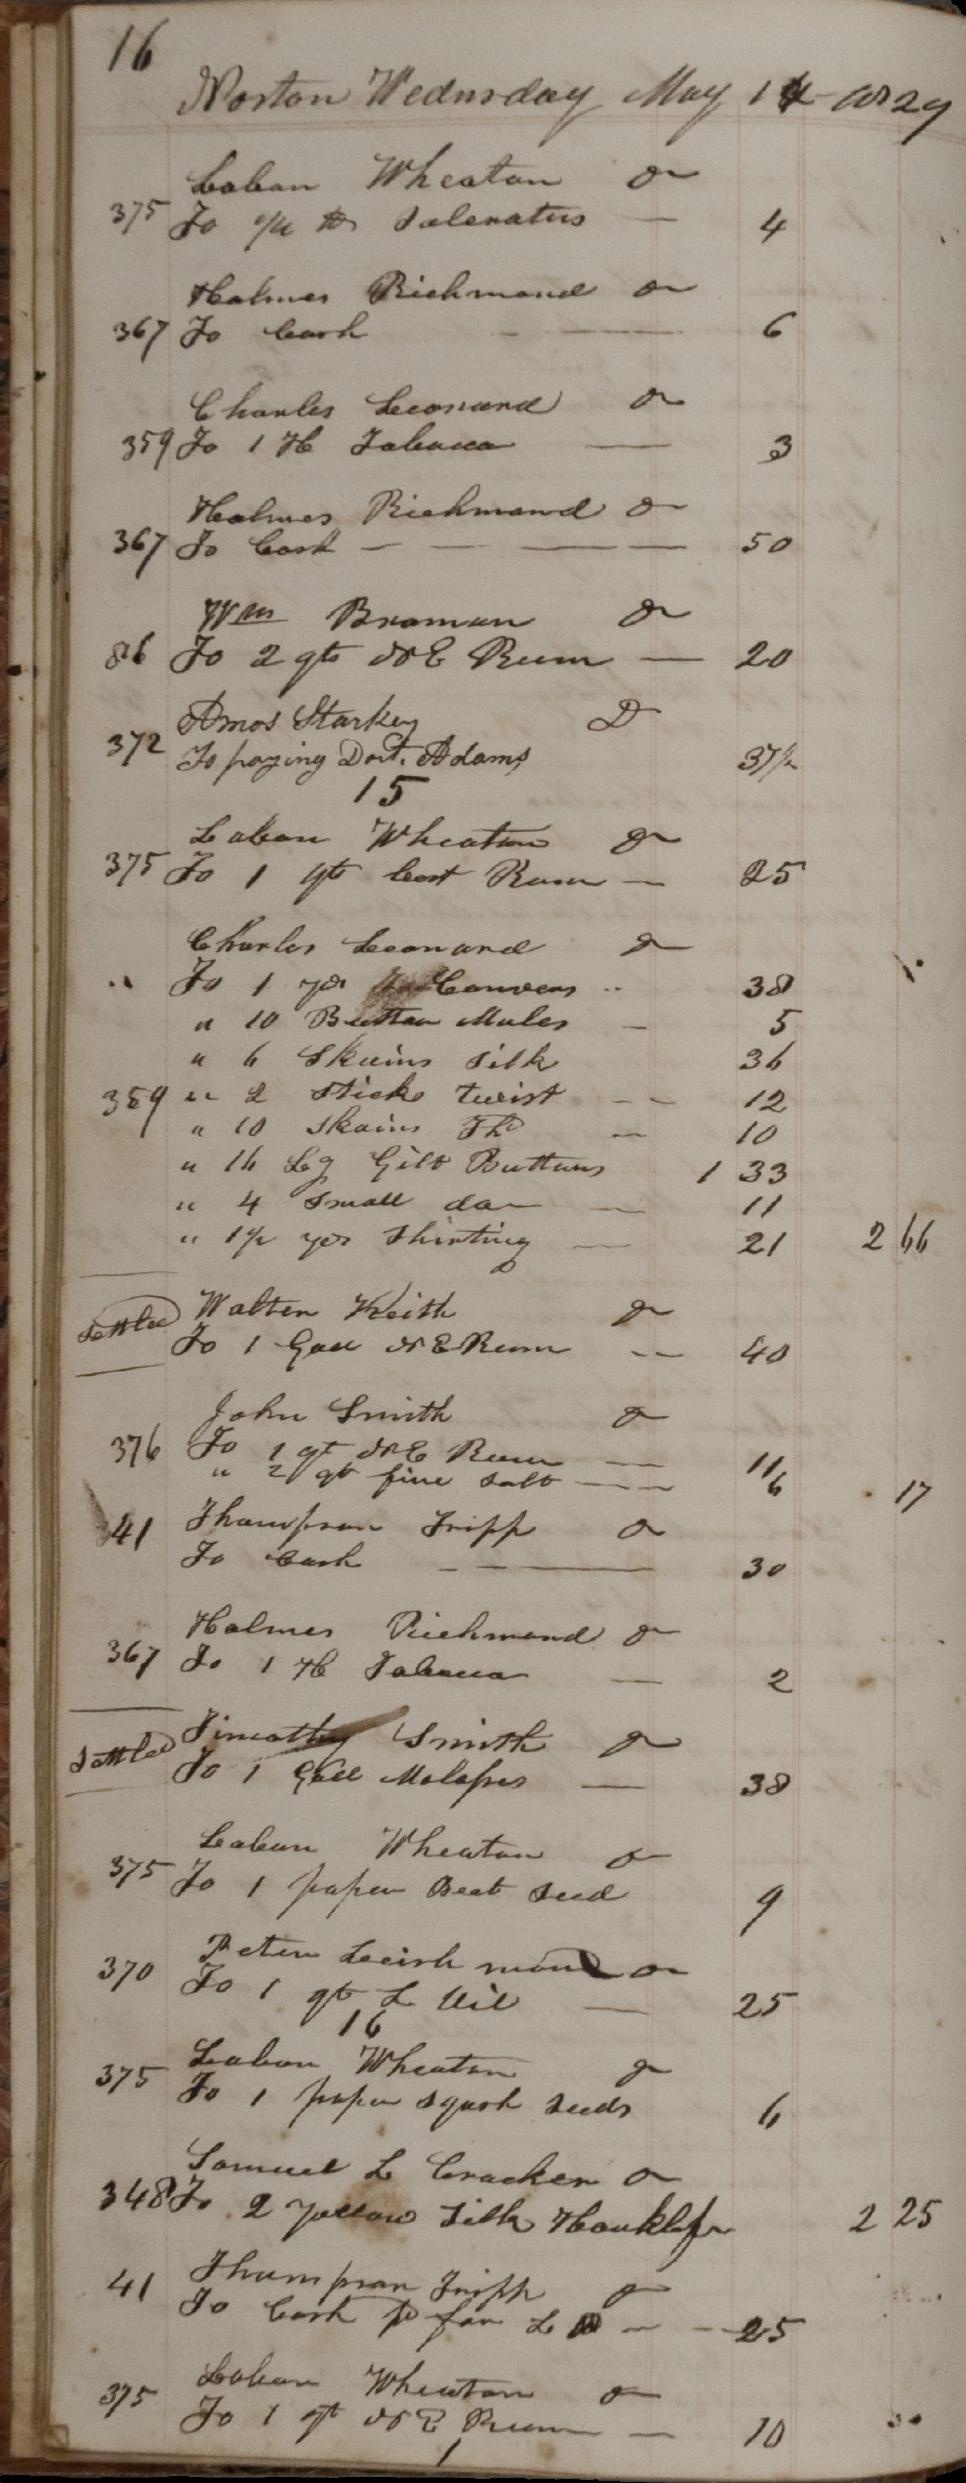 16
Norton Wednesday May 14 1829
Laban Wheaton Dr
375 To 1/4 lb Saleratus — 4
Holmes Richmond Dr
367 To Cash — 6
Charles Leonard Dr
359 To 1 Hd Tobacco — 3
Holmes Richmond Dr
367 To Cash — — — — 50
Wm Braman Dr
86 To 2 qts N E Rum — 20
Amos Starkey Dr
372 To paying Doct. Adams 37 1/2
15
Laban Wheaton Dr
375 To 1 qt Rum — 25
Charles Leonard Dr
" To 1 yd Canvass " 38
" 10 Button Moles — 5
" 6 Skains Silk 36
359 " 2 Sticks Twist — — 12
" 10 Skains Thd — 10
" 16 Lg Gilt Buttons 1 33
" 4 Small do — 11
" 1 1/2 yds Shirting — 21 2 66
Settled Walter Keith Dr
To 1 Gall N E Rum — 40
John Smith Dr
376 To 1 qt N E Rum — 11
" 2 qt fine Salt — — — 6 17
41 Thompson Tripp Dr
To Cash — — 30
Holmes Richmond Dr
367 To 1 Hd Tobacco — 2
Settled Timothy Smith Dr
To 1 Gall Molasses — 38
Laban Wheaton Dr
375 To 1 paper Beet Seed 9
370 Peter Leish man Dr
To 1 qt L Oil — 25
16
Laban Wheaton Dr
375 To 1 paper Squash Seeds 6
Samuel L Crocker Dr
348 To 2 Yellow Silk Hdkfs 2 25
41 Thompson Tripp Dr
To Cash pd for L — — 25
Laban Wheaton Dr
375 To 1 qt N E Rum — 10